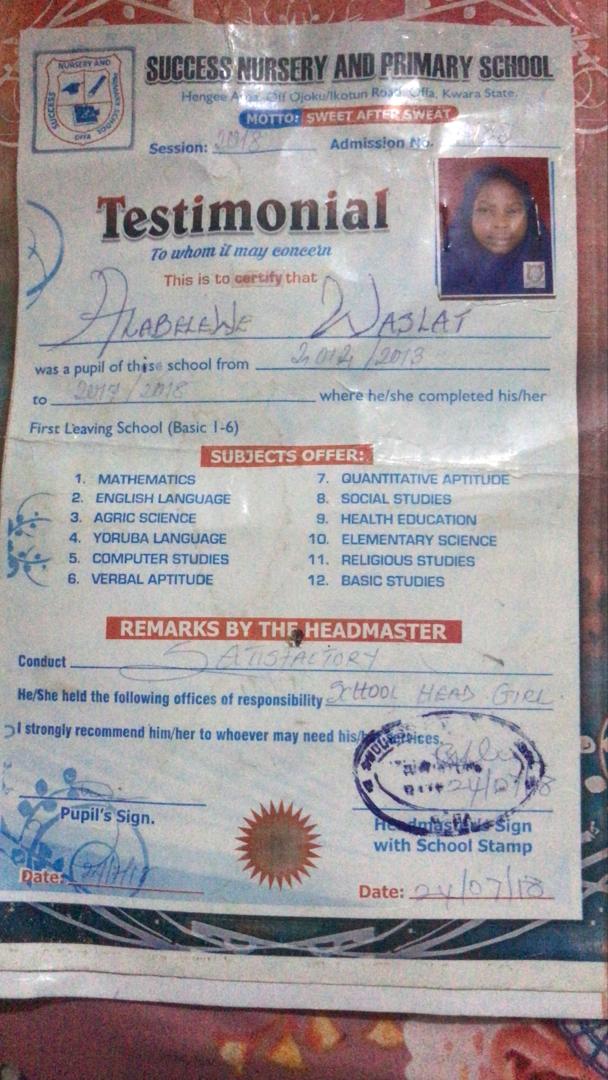 NURSERY AND
SUCCESS
PRIMARY SCHOOLS
OFFA
SUCCESS NURSERY AND PRIMARY SCHOOL
Hengee Area, Off Ojoku/Ikotun Road, Offa, Kwara State.
MOTTO: SWEET AFTER SWEAT
Session: 2018 Admission No.
Testimonial
To whom it may concern
This is to certify that
WASLAT
was a pupil of this school from 2012/2013
to 2017/2018 where he/she completed his/her
First Leaving School (Basic 1-6)
SUBJECTS OFFER:
1. MATHEMATICS
2. ENGLISH LANGUAGE
3. AGRIC SCIENCE
4. YORUBA LANGUAGE
5. COMPUTER STUDIES
6. VERBAL APTITUDE
7. QUANTITATIVE APTITUDE
8. SOCIAL STUDIES
9. HEALTH EDUCATION
10. ELEMENTARY SCIENCE
11. RELIGIOUS STUDIES
12. BASIC STUDIES
REMARKS BY THE HEADMASTER
Conduct SATISFACTORY
He/She held the following offices of responsibility SCHOOL HEAD GIRL
I strongly recommend him/her to whoever may need his/her services.
24/07/18
Pupil's Sign.
Headmaster's Sign
with School Stamp
Date:
Date: 24/07/18